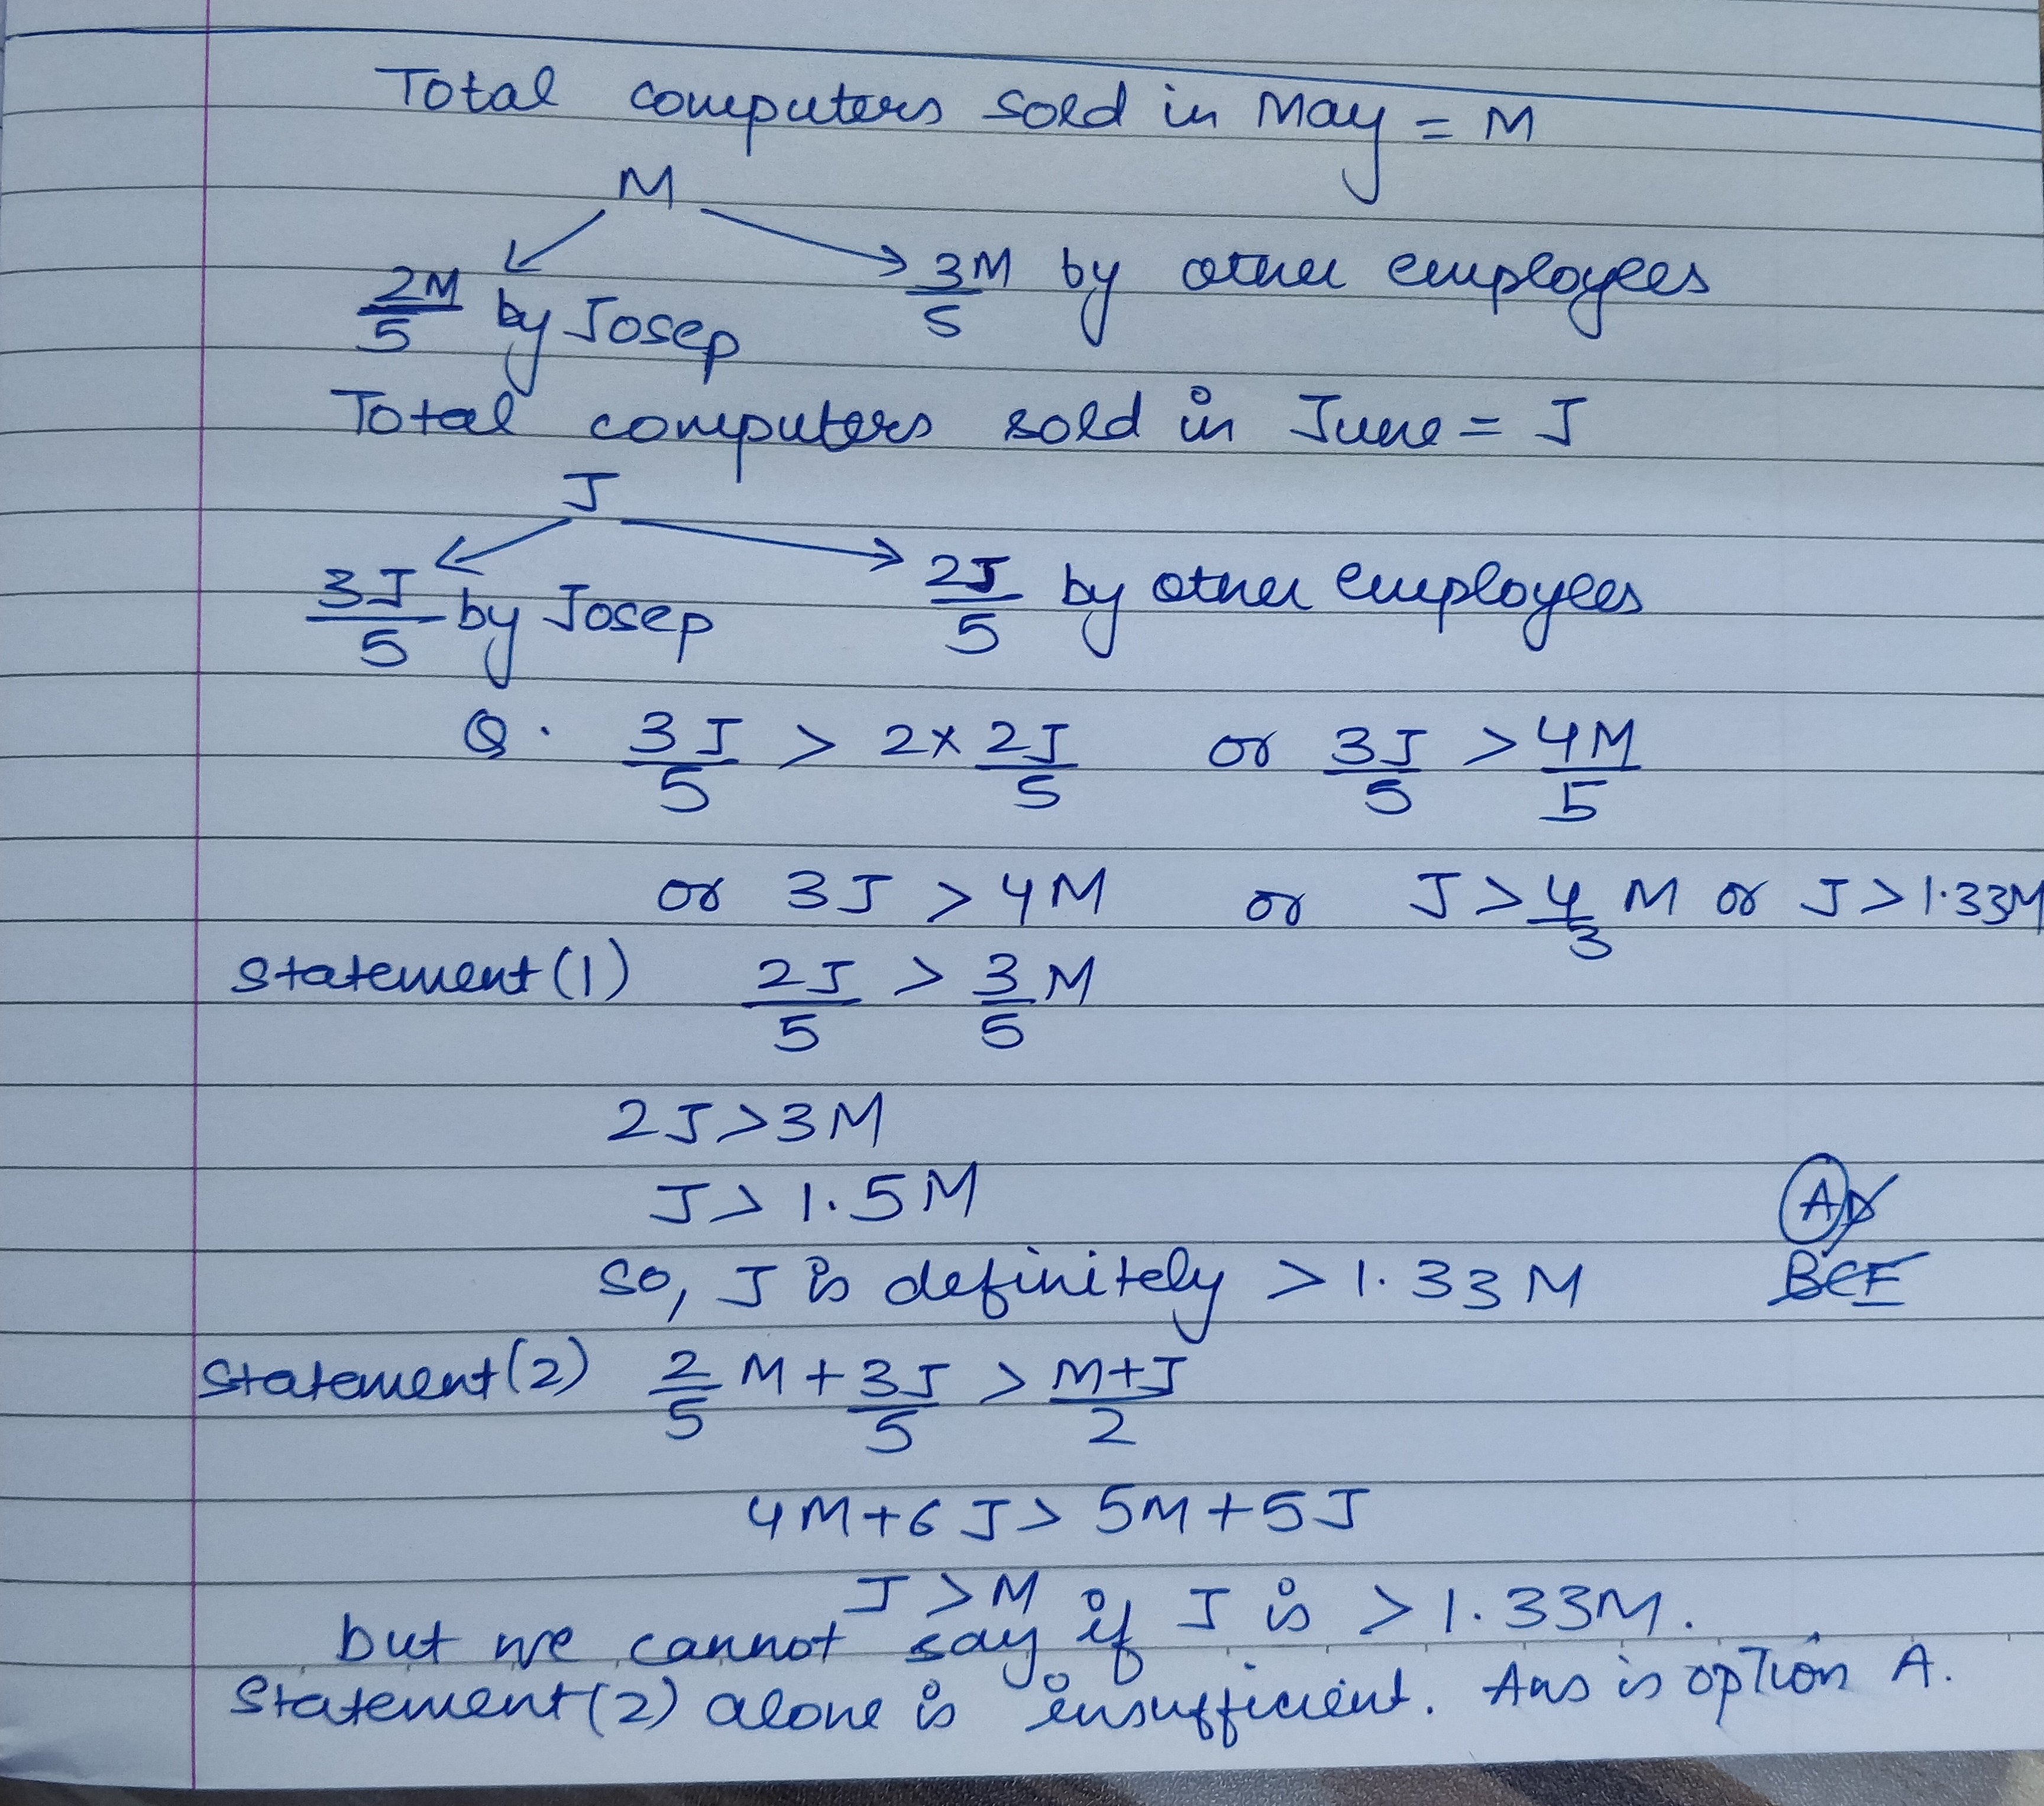 Total computers sold in May = M
M
2M/5 by Josep 3M/5 by other employees
Total computers sold in June = J
J
3J/5 by Josep 2J/5 by other employees
Q. 3J/5 > 2x 2J/5 or 3J/5 > 4M/5
or 3J > 4M or J > 4/3 M or J > 1.33M
Statement (1) 2J/5 > 3/5 M
2J > 3M
J > 1.5M
AD
so, J is definitely > 1.33M
BCE
Statement (2) 2/5 M + 3J/5 > M+J/2
4M+6J > 5M+5J
J > M
but we cannot say if J is > 1.33M.
Statement (2) alone is insufficient. Ans is option A.